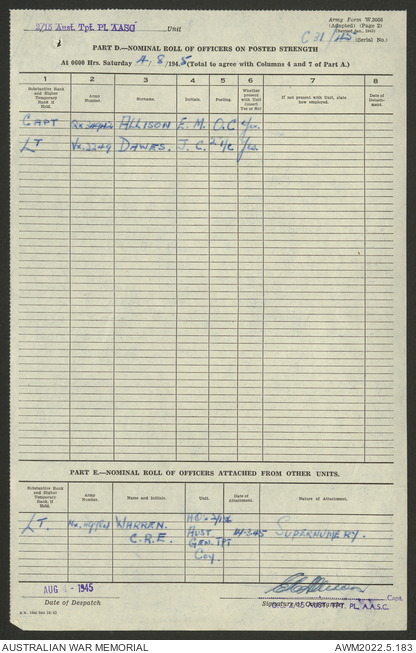 2/15 Aust. Tpt. Pl. AASC Unit
Army Form W.3008
(Adapted) (Page 2)
C 31/45 (Serial No.)
PART D.—NOMINAL ROLL OF OFFICERS ON POSTED STRENGTH
At 0600 Hrs. Saturday 4/8/1945 (Total to agree with Columns 4 and 7 of Part A.)
1 2 3 4 5 6 7 8
Substantive Rank and Higher Temporary Rank if Held.
Army Number.
Surname.
Initials.
Posting.
Whether present with Unit (insert Yes or No)
If not present with Unit, state how employed.
Date of Detachment.
CAPT ALLISON E. M. O.C Yes.
LT Vx.2249 DAWES. J. C. 2 i/c Yes.
PART E.—NOMINAL ROLL OF OFFICERS ATTACHED FROM OTHER UNITS.
Substantive Rank and Higher Temporary Rank if Held.
Army Number.
Name and Initials.
Unit.
Date of Attachment.
Nature of Attachment.
LT. WARREN. C.R.E. AUST. GEN. TPT COY. 14·3·45 SUPERNUMERY.
AUG 1945
Date of Despatch
Capt.
O.C. 2/15 AUST. TPT. PL. A.A.S.C.
AUSTRALIAN WAR MEMORIAL
AWM2022.5.183